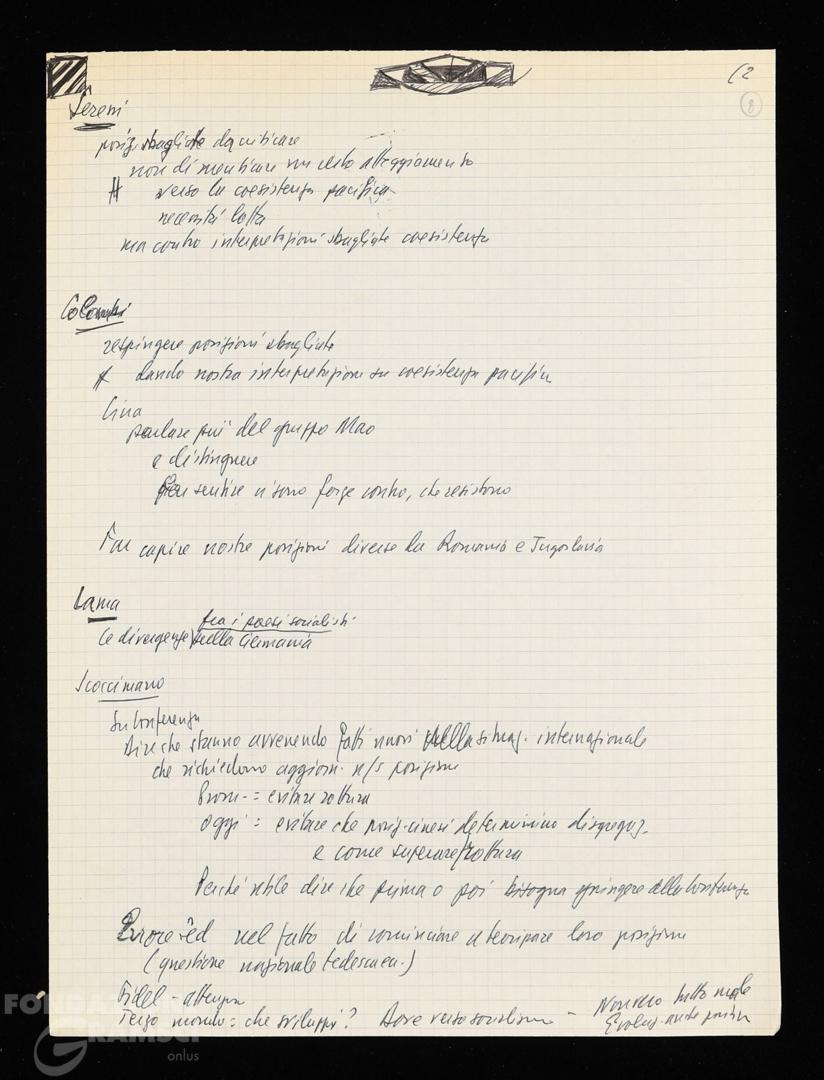 (2
8
Sereni
posiz. sbagliate da criticare
non dimenticare un certo atteggiamento
# verso la coesistenza pacifica
necessità lotta
ma contro interpretazioni sbagliate coesistenza
Colombi
respingere posizioni sbagliate
# dando nostra interpretazione su coesistenza pacifica
Cina
parlare più del gruppo Mao
e distinguere
Far sentire vi sono forze contro, che resistono
Far capire nostre posizioni diverse da Romania e Jugoslavia
Lama
fra i paesi socialisti
(e divergenze) sulla Germania
Scoccimarro
Su Conferenza
Dire che stanno avvenendo fatti nuovi nella situaz. internazionale
che richiedono aggiorn. n/s posizione
= evitare rottura
Oggi = evitare che posiz. cinesi determinino disgregaz.
e come superare rottura
Perché utile dire che prima o poi bisogna giungere alla Conferenza
Errore ed nel fatto di cominciare a teorizzare loro posizione
(questione nazionale tedesca.)
Fidel -
Terzo mondo = che sviluppi? Dove verso socialismo -
Non tutto male
anche
FONDAZIONE
GRAMSCI
onlus